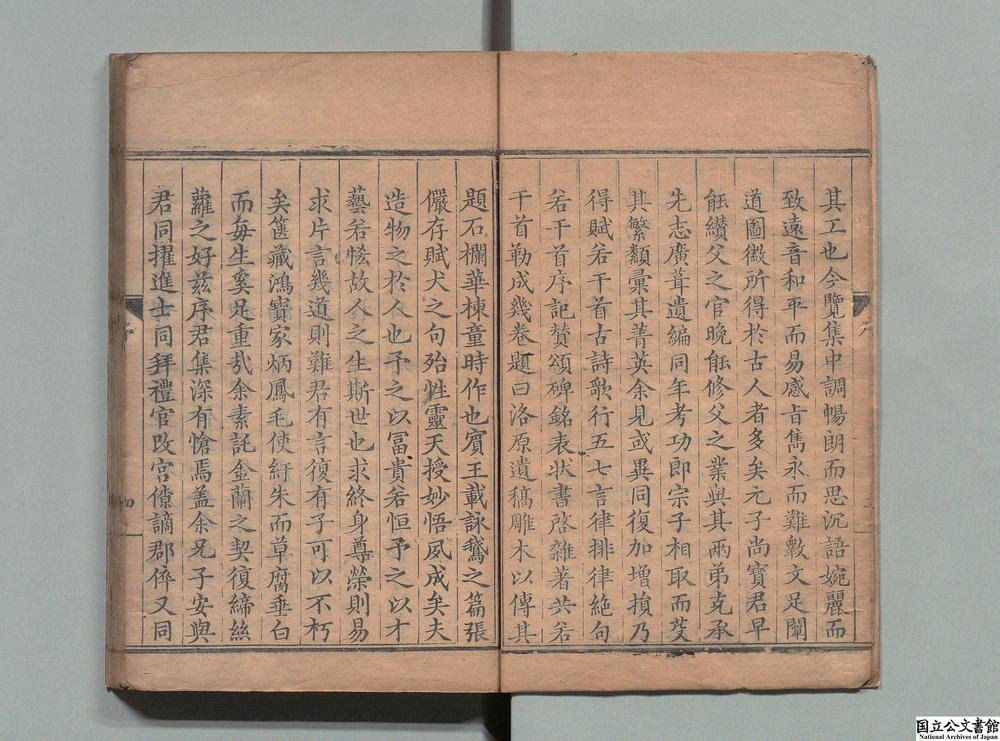 其工也今覽集中調暢朗而思沉語婉麗而
致遠音和平而易感旨雋永而難斁文足闡
道圖徽所得於古人者多矣元子尚寶君早
能纘父之官晚能修父之業與其兩弟克承
先志廣葺遺編同年考功即宗子相取而芟
其繁纇彙其菁英余見或異同復加增損乃
得賦若干首古詩歌行五七言律排律絕句
若干首序記贊頌碑銘表狀書啓雜著共若
干首勒成幾卷題曰洛原遺稿雕木以傳其
題石欄華棟童時作也賓王載詠鵝之篇張
儼存賦犬之句殆性靈天授妙悟夙成矣夫
造物之於人也予之以冨貴若恒予之以才
藝若恡故人之生斯世也求終身尊榮則易
求片言幾道則難君有言復有子可以不朽
矣篋藏鴻寶家炳鳳毛使紆朱而草腐垂白
而每生奚足重㢤余素託金蘭之契復締絲
蘿之好兹序君集深有愴焉盖余兄子安與
君同擢進士同拜禮官改宮僚謫郡倅又同
序
四
国立公文書館
National Archives of Japan